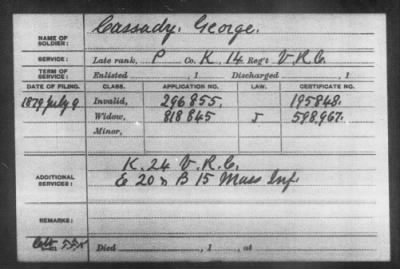 NAME OF SOLDIER: Cassady, George.
SERVICE: Late rank, P Co. K, 14 Reg't V.R.C.
TERM OF SERVICE: Enlisted , 1 Discharged , 1
DATE OF FILING. CLASS. APPLICATION NO. LAW. CERTIFICATE NO.
1879 July 9 Invalid, 296855. 195848.
Widow, 818845 5 598,967.
Minor,
K. 24 V.R.C.
ADDITIONAL SERVICES: E 20 & B 15 Mass Inf.
REMARKS:
Died , 1 , at